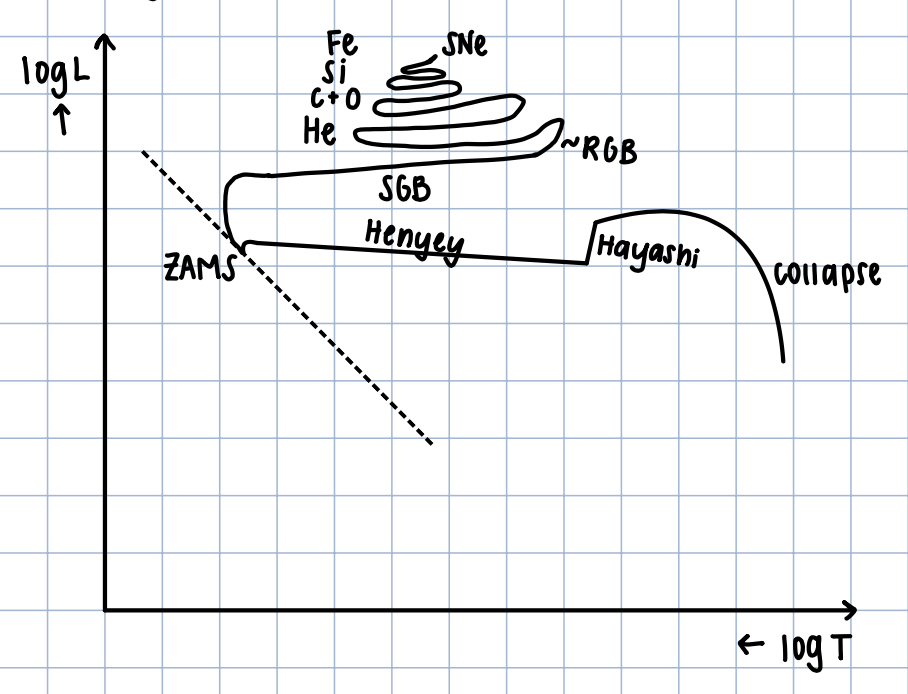 Fe
SNe
logL
↑
Si
C+O
He
~RGB
SGB
Henyey
Hayashi
ZAMS
collapse
← logT